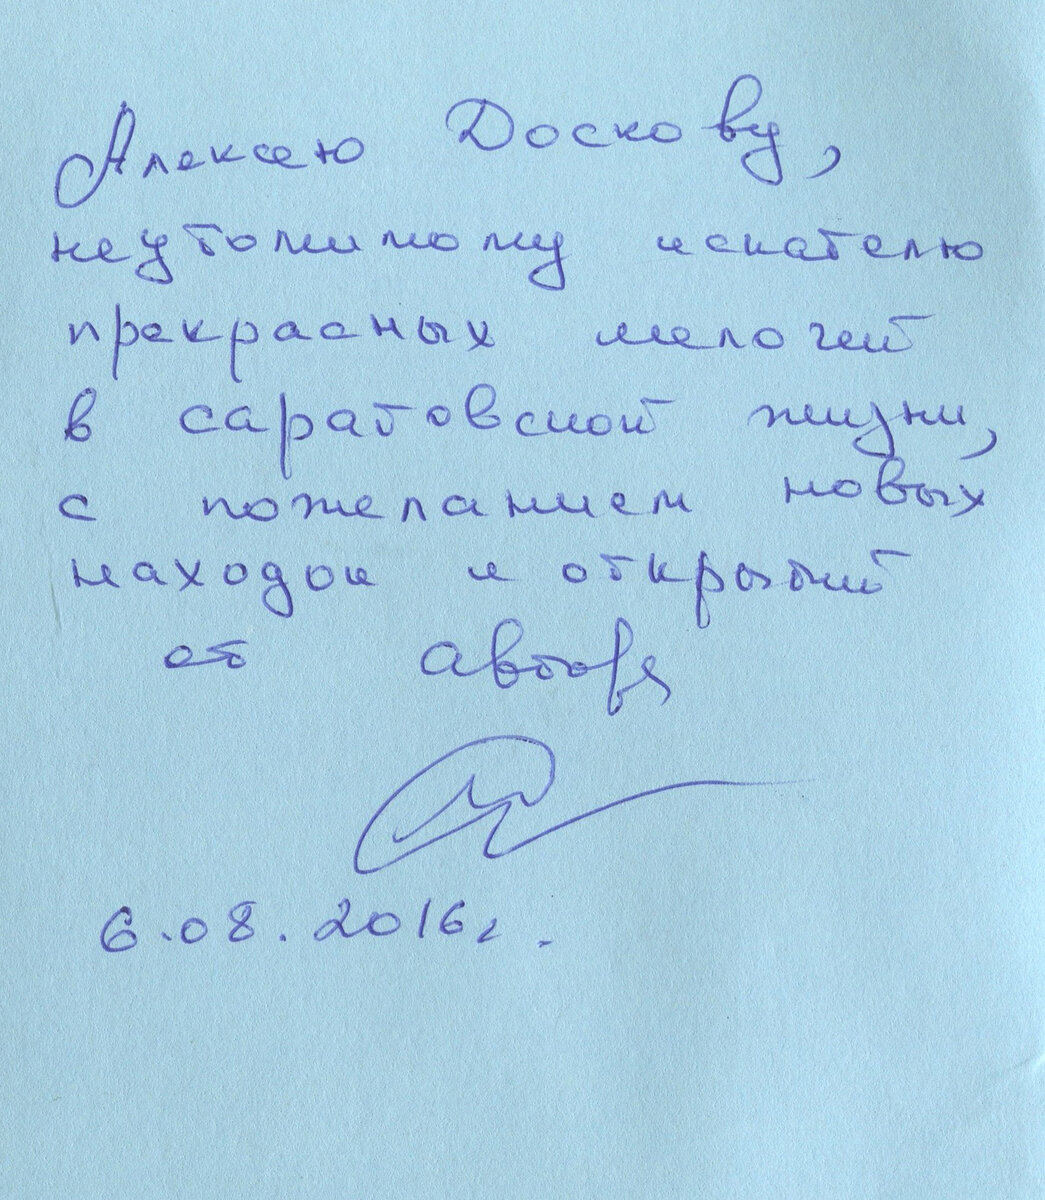 Алексею Доскову,
неутомимому искателю
прекрасных мелочей
в саратовской жизни,
с пожеланием новых
находок и открытий
от автора
6.08.2016г.